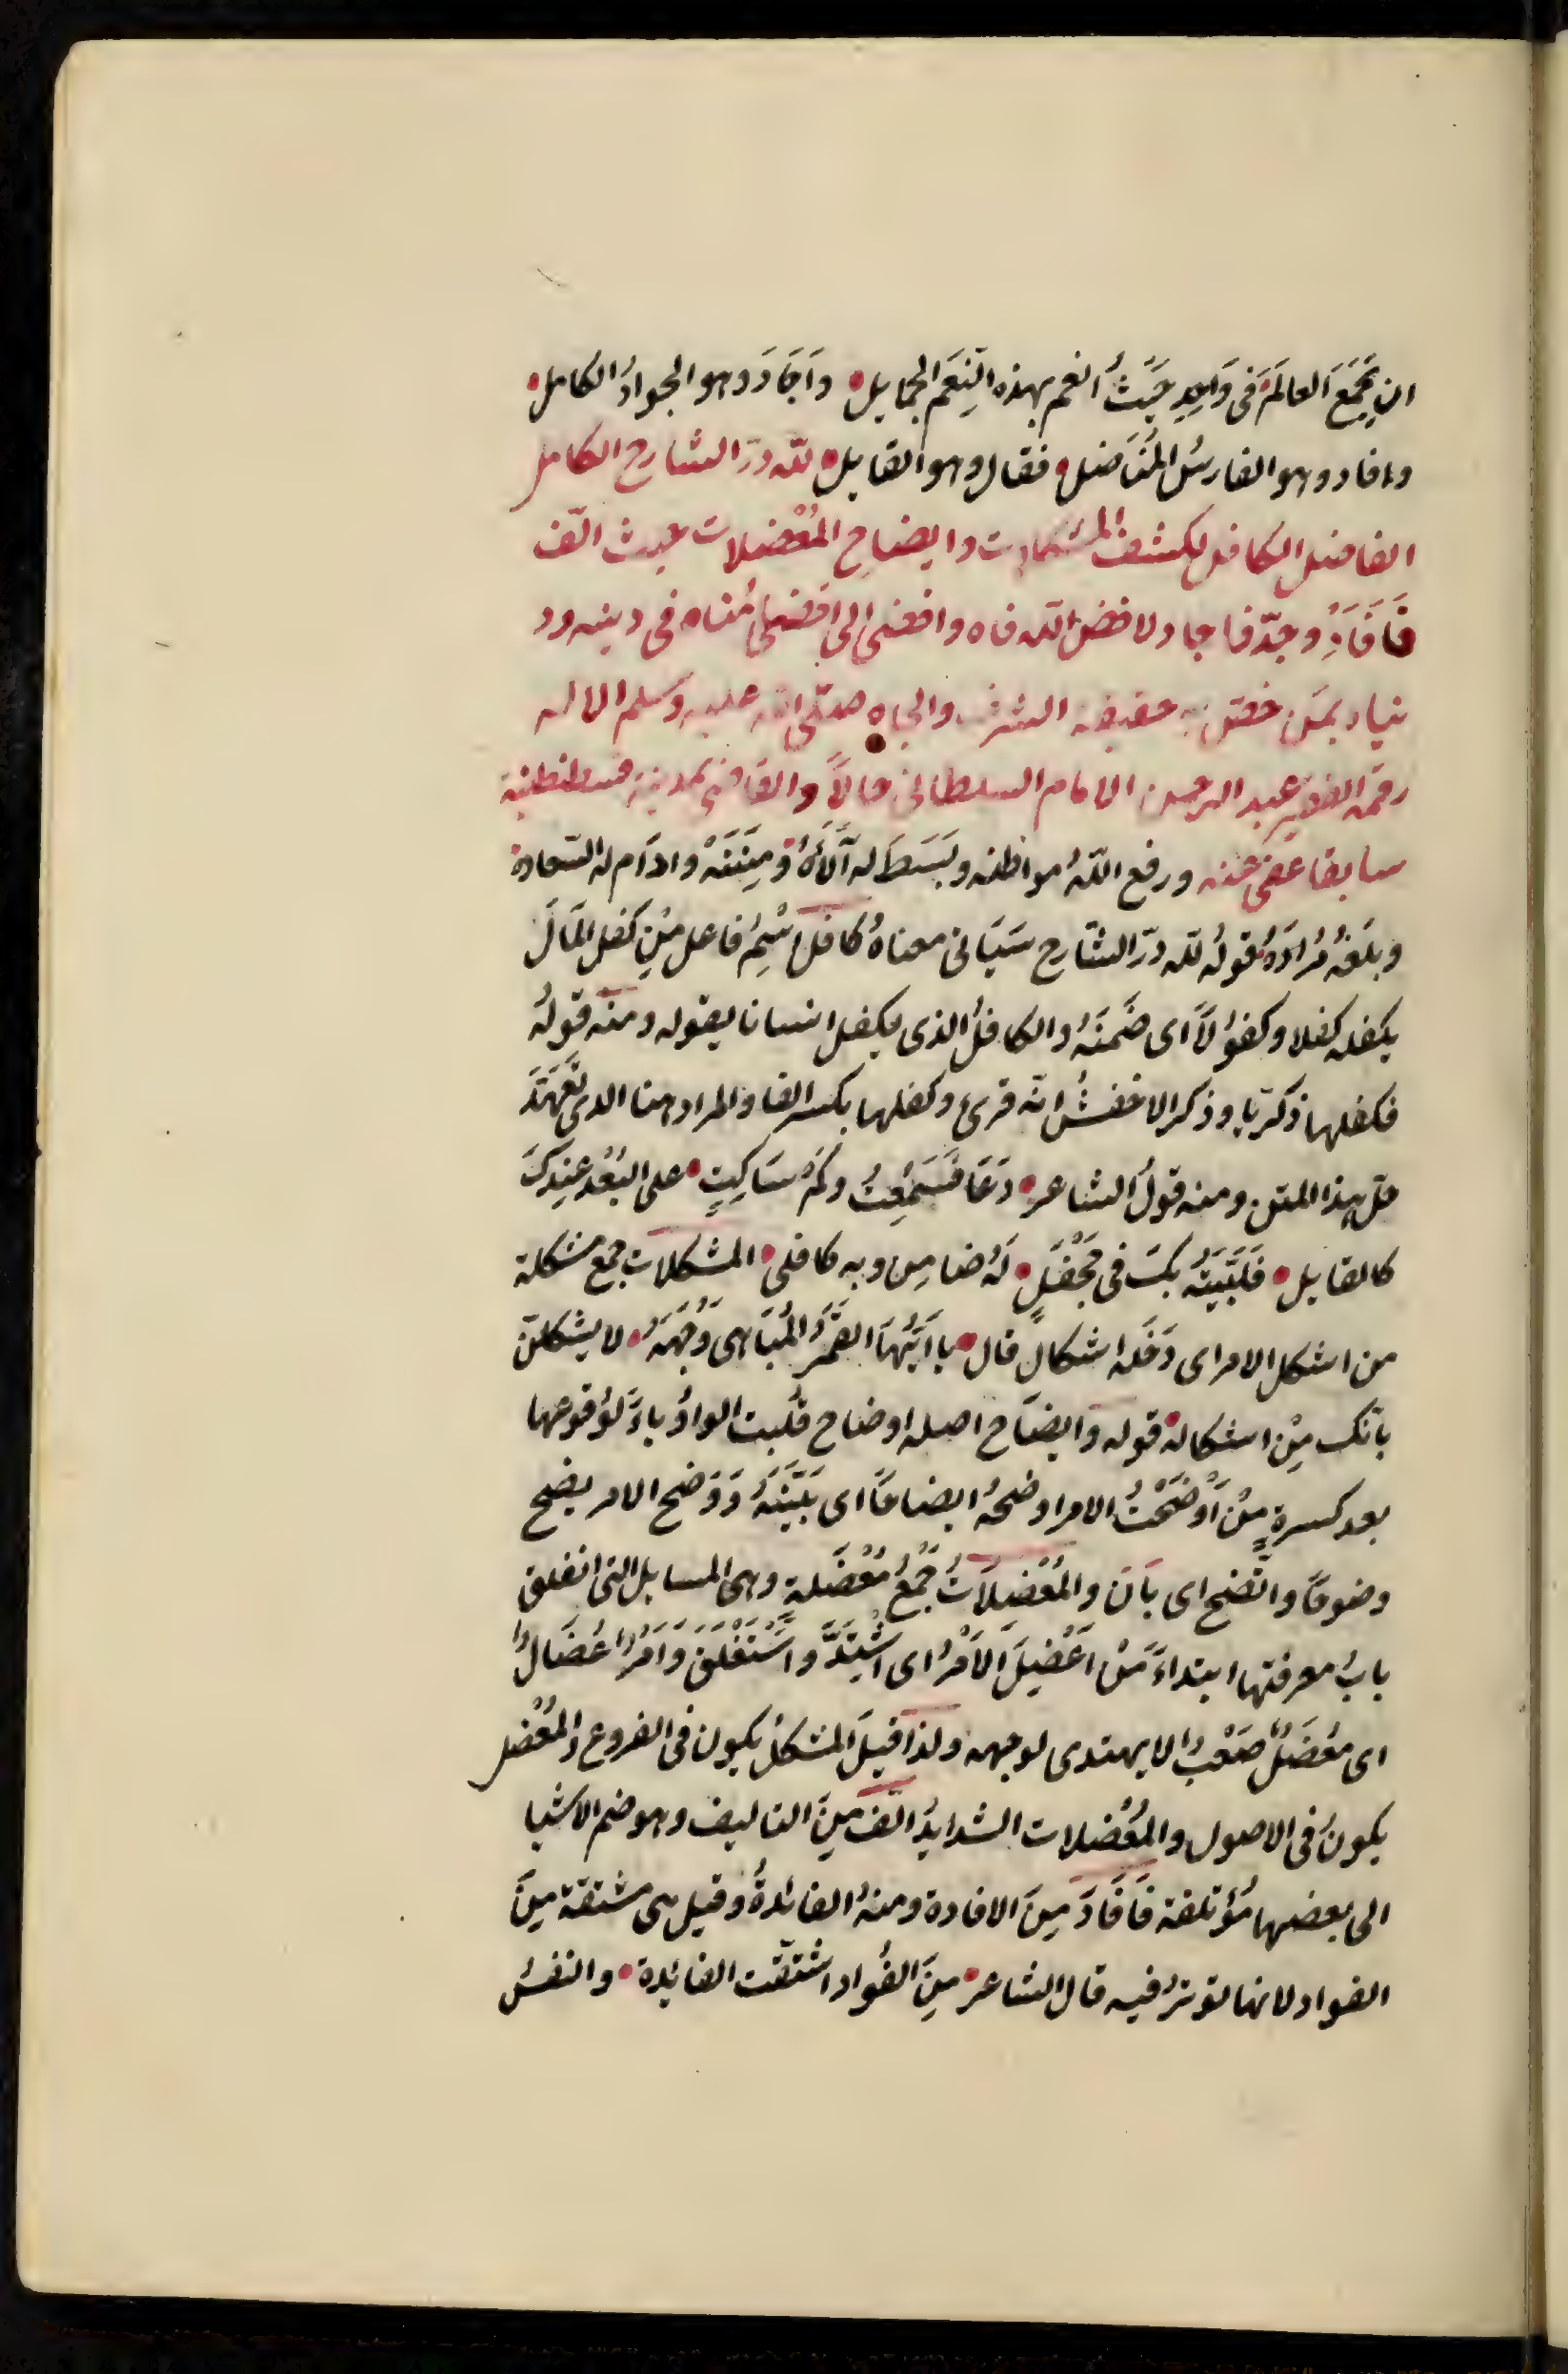 ان يَجْمَعَ العالَمَ فى وَاحِدِ حَيْثُ انعم بهذه النِّعَم الجمايل • واَجَادَ وهو الجوادُ الكامل •
وافاد وهو الفارسُ المُنَاضل • فقال وهو القايل • للّه درّ الشارح الكامل
الفاضل الكافل لكشف المشكلات وايضاحِ المُعْضلات حيث الّف
فَاَفَادَ وجدّ فاجاد لا فضّ الله فاه وافضى الى اقصى مُناه فى دينه ود
نياه بمَن خصّ به حقيقة الشرف والجاه صلّى الله عليه وسلم الا له
رقمه الفقير عبد الرحمن الامام السلطانى حالاً والقاضى بمدينة قسطنطنية
سابقا عفى عنه ورفع اللّهُ مواطنه وبَسَطَ له آلَاءَهُ ومِنَنَهُ وادَام له السّعادة
وبلغهُ مُرادَهُ قولهُ للّه درّ الشّارح سَيَاتى معناهُ كافل اسْمُ فاعل مِنْ كفل المَالَ
يكفله كفلا وكفوُلاً اى ضَمنَهُ والكافلُ الذى يكفل انسانا يعوله ومنه قولهُ
فكفلها زكريّا وذكر الاخفشُ انّه قرئ وكفلها بكسر الفا والمراد هنا الذى تعَهّدَ
حل هذا المتن ومنه قولُ الشاعر • دَعَا فَسَمِعْتُ وكم سَاكِتٍ • على البُعْد عِندكَ
كالقايل • فَلَبَّيْتُهُ بكَ فى مَحْفَلٍ • لَهُ ضامِن وبه كافلى • المشكلات جمع مشكلة
من اشكل الامر اى دَخَلَه اشكالٌ قال • يا اَيُّهَا القَمَرُ المُبَاهى وَجْهَهُ • لا يشكلنّ
بانّك مِنْ اشكاله • قوله وايضَاح اصله اوضاح قُلبت الواوُ ياءً لوُقوعها
بعد كسرةٍ مِنْ اَوْضَحْتُ الامر اوضحهُ ايضاحًا اى بَيَّنْتُهُ وَوَضح الامر يضح
وضوحًا واتّضح اى بَانَ والمُعْضِلَاتُ جَمْعُ مُعْضَلةٍ وهى المسايل التى انغلق
بابُ معرفتها ابتداءً مَنْ اَعْضِلَ الاَمْرُ اى اشْتَدَّ واسْتَغْلَقَ وَامْرٌ اعُضَالٌ
اى مُعْضَلٌ صَعْبٌ لا يهتدى لوجهه ولذا قيلَ المشكلُ يكون فى الفروع والمُعْضل
يكونُ فى الاصول والمُعْضلات الشدايدُ الّف مِنَ التاليف وهو ضم الاشيا
الى بعضها مُؤتلفة فَاَفَادَ مِنَ الافادة ومنهُ الفائدةُ وقيل هى مشتقة مِنَ
الفواد لانها توثرُ فيه قال الشاعر • مِنَ الفُواد اشتقّت الفائدة • والنفسُ